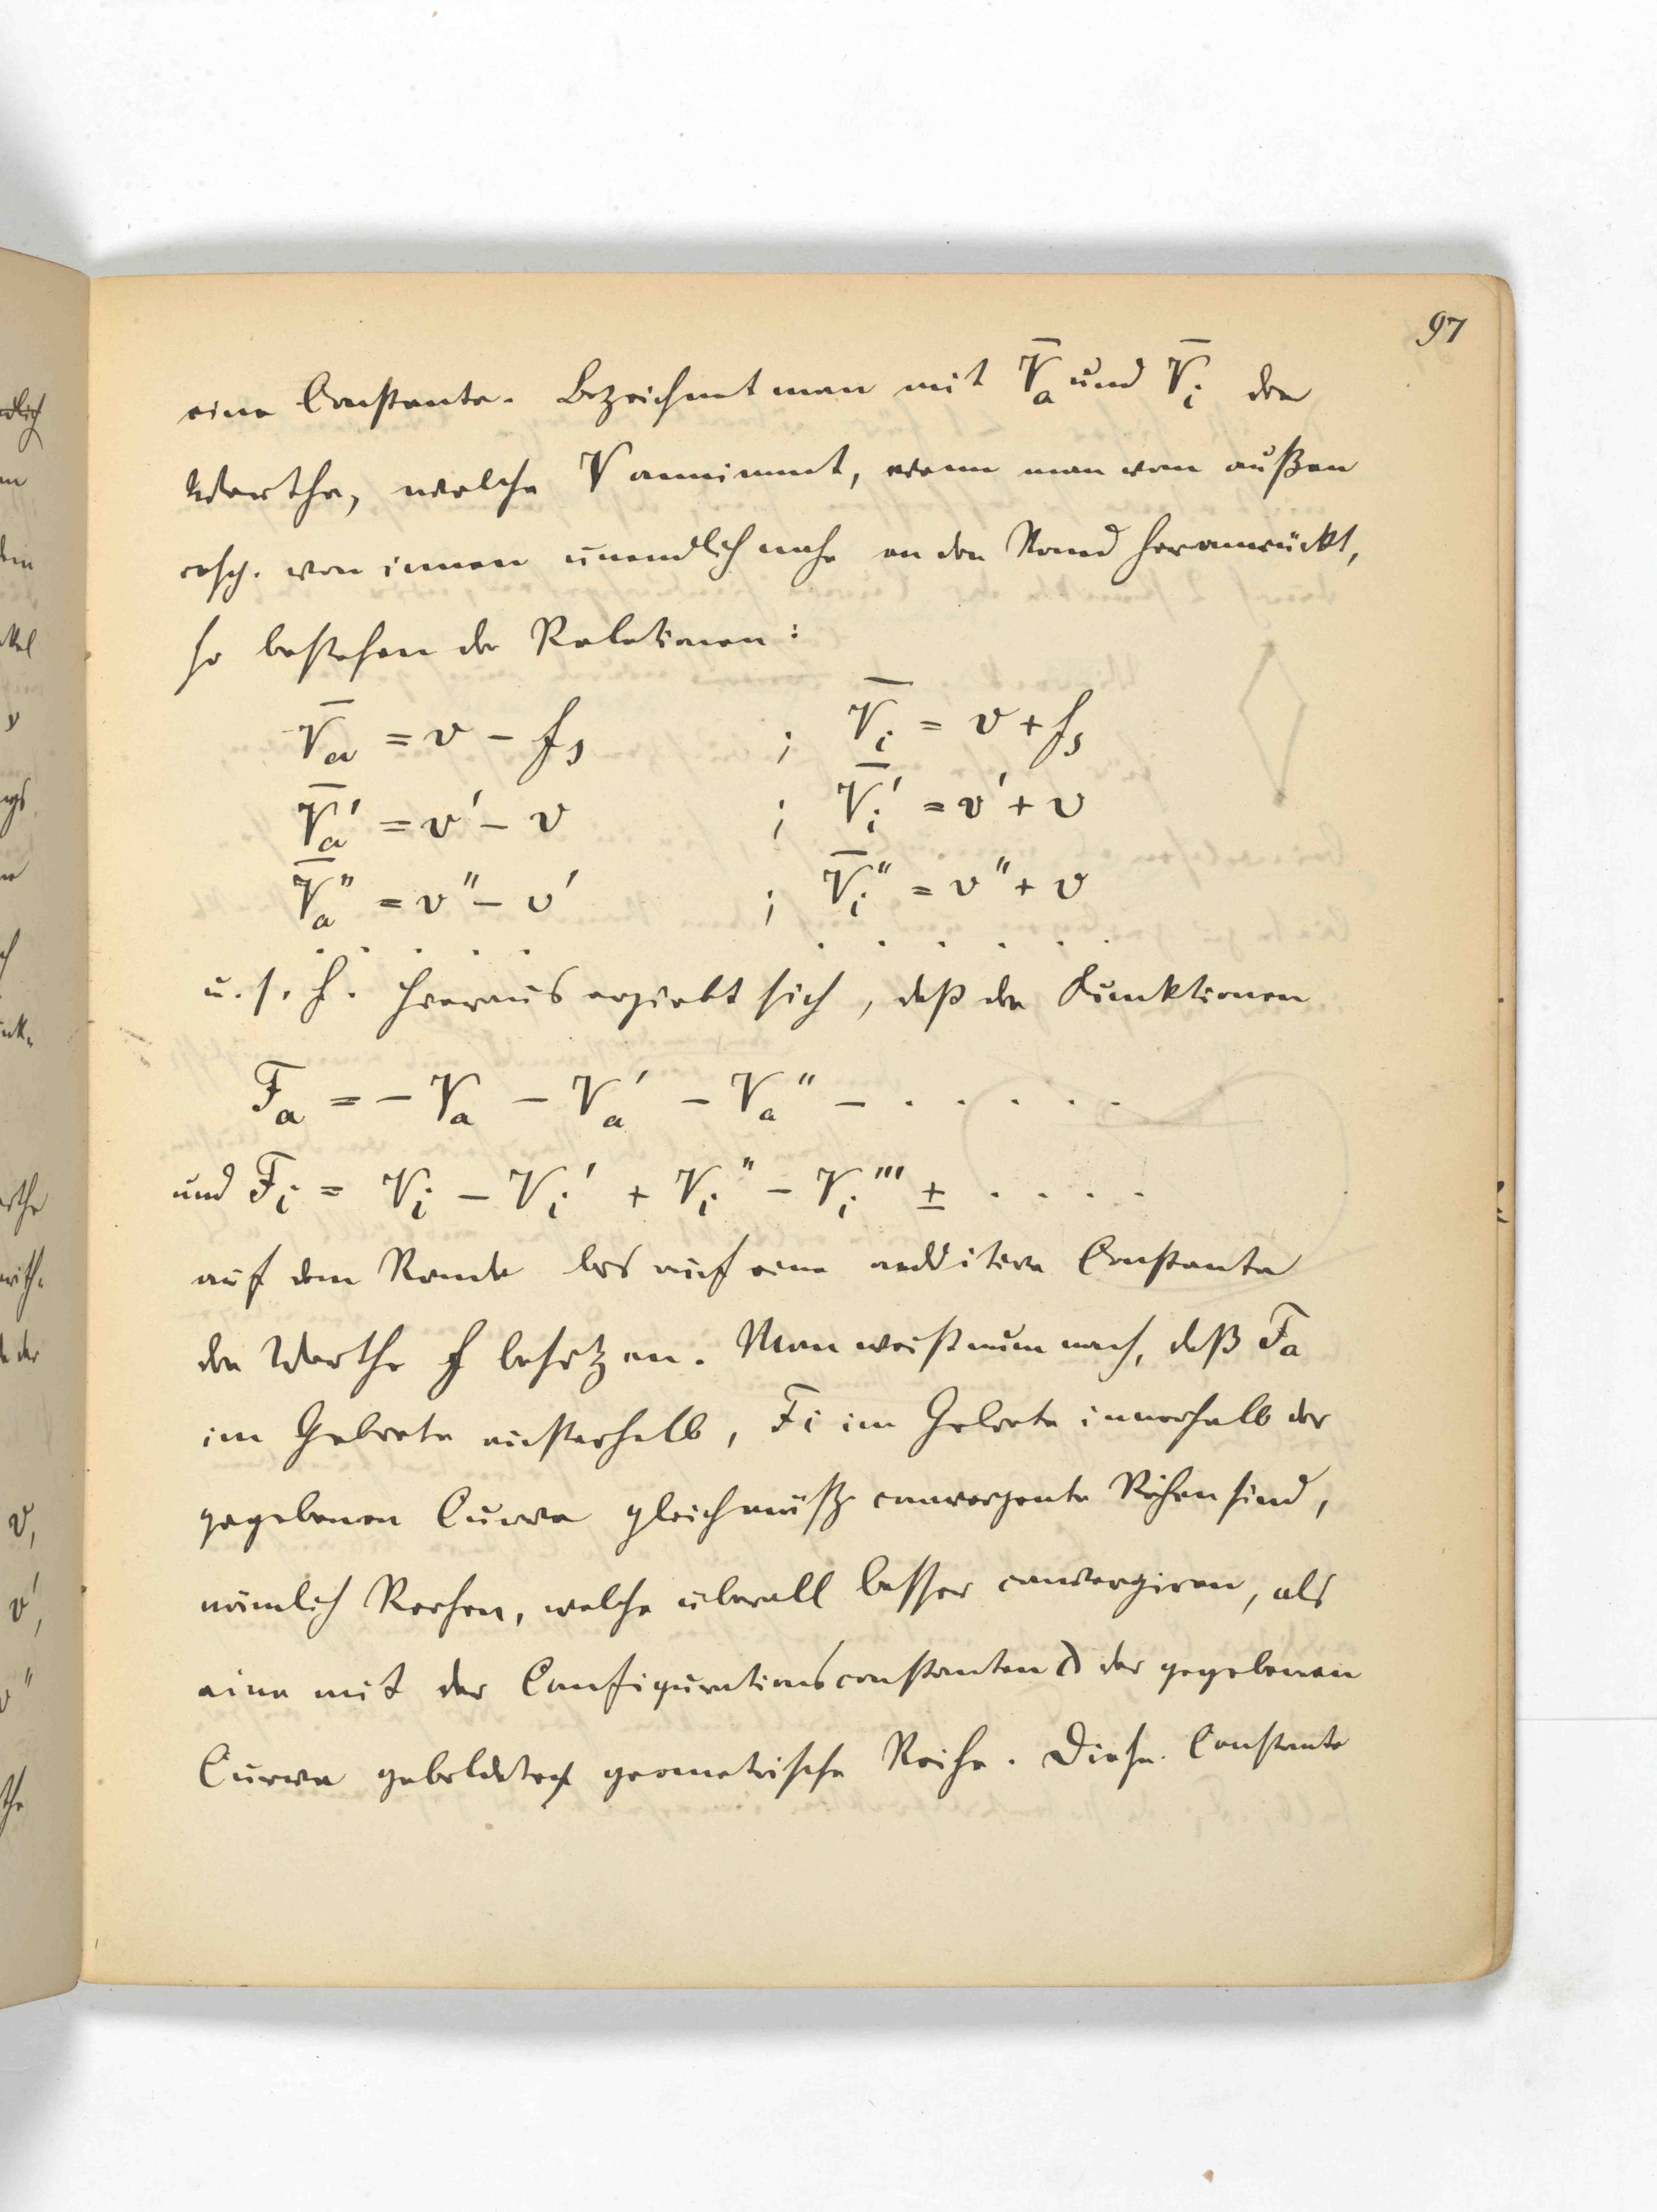 97
eine Constante. Bezeichnet man mit V̅a und V̅i die
Werthe, welche V annimmt, wenn man von außen
resp. von innen unendlich nahe an den Rand heranrückt,
so bestehen die Relationen:
V̅a = v − fs ; V̅i = v + fs
V̅a' = v' − v ; V̅i' = v' + v
V̅a'' = v'' − v' ; V̅i'' = v'' + v
. . . . . . . . . . .
u. s. f. Hieraus ergiebt sich, daß die Funktionen
Fa = − Va − Va' − Va'' − . . . . .
und Fi = Vi − Vi' + Vi'' − Vi''' ± . . . .
auf dem Rande bis auf eine additive Constante
die Werthe f besitzen. Man weist nun nach, daß Fa
im Gebiete außerhalb, Fi im Gebiete innerhalb der
gegebenen Curve gleichmäßg. convergente Reihen sind,
nämlich Reihen, welche überall besser convergiren, als
eine mit der Configurationsconstanten λ der gegebenen
Curve gebildete geometrische Reihe. Diese Constante